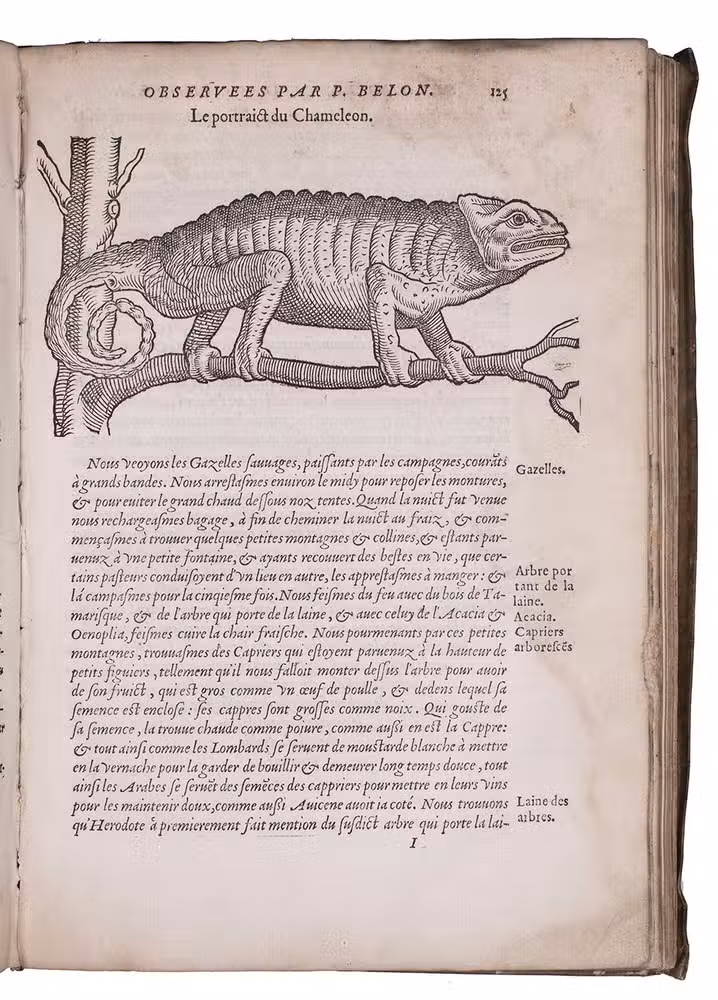 OBSERVEES PAR P. BELON. 125
Le portraict du Chameleon.
Nous veoyons les Gazelles ſauuages, paiſſants par les campagnes, courãts
à grands bandes. Nous arreſtaſmes enuiron le midy pour repoſer les montures,
& pour euiter le grand chaud deſſous noz tentes. Quand la nuict fut venue
nous rechargeaſmes bagage, à fin de cheminer la nuict au fraiz, & com-
mençaſmes à trouuer quelques petites montagnes & collines, & eſtants par-
uenuz à vne petite fontaine, & ayants recouuert des beſtes en vie, que cer-
tains paſteurs conduiſoyent d'vn lieu en autre, les appreſtaſmes à manger: &
là campaſmes pour la cinqieſme fois. Nous feiſmes du feu auec du bois de Ta-
mariſque, & de l'arbre qui porte de la laine, & auec celuy de l'Acacia &
Oenoplia, feiſmes cuire la chair fraiſche. Nous pourmenants par ces petites
montagnes, trouuaſmes des Capriers qui eſtoyent paruenuz à la hauteur de
petits figuiers, tellement qu'il nous falloit monter deſſus l'arbre pour auoir
de ſon fruict, qui eſt gros comme vn œuf de poulle, & dedens lequel ſa
ſemence eſt encloſe: ſes cappres ſont groſſes comme noix. Qui gouſte de
ſa ſemence, la trouue chaude comme poiure, comme auſsi en eſt la Cappre:
& tout ainſi comme les Lombards ſe ſeruent de mouſtarde blanche à mettre
en la vernache pour la garder de bouillir & demeurer long temps douce, tout
ainſi les Arabes ſe ſeruẽt des ſemẽces des cappriers pour mettre en leurs vins
pour les maintenir doux, comme auſsi Auicene auoit ia coté. Nous trouuons
qu'Herodote à premierement fait mention du ſuſdict arbre qui porte la lai-
I
Gazelles.
Arbre por
tant de la
laine.
Acacia.
Capriers
arboreſcẽs
Laine des
arbres.